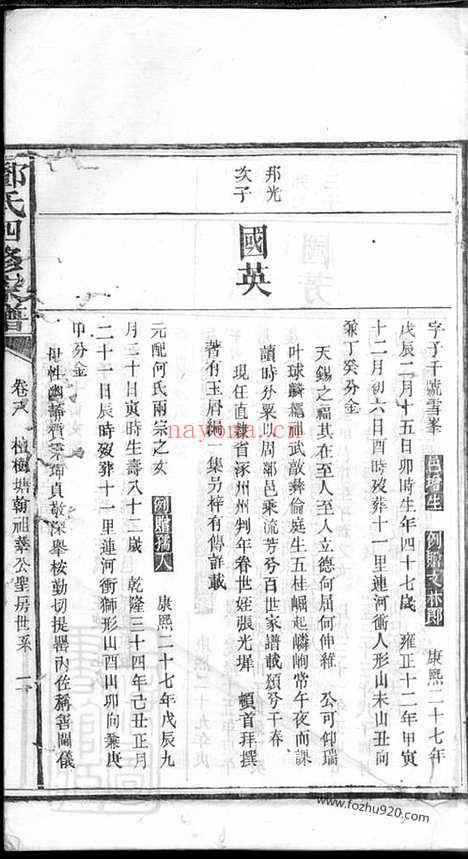 邦光
次子
國英
字子千號雪峯 邑增生 例贈文林郎 康熙二十七年
戊辰二月十五日卯時生年四十七歲 雍正十二年甲寅
十二月初六日酉時歿葬十一里連河衝人形山未山丑向
兼丁癸分金
天錫之福其在至人至人立德何屈何伸雜 公可仰瑞
叶球麟繩祖武敦彝倫庭生五桂崛起嶙峋常午夜而課
讀時分粟以周鄰邑乘流芳兮百世家譜載頌兮千春
現任直隸首涿州州判年眷世姪張光墀 頓首拜撰
著有玉眉編一集另梓有傳詳載
元配何氏兩宗之女 例贈孺人 康熙二十七年戊辰九
月二十日寅時生壽八十二歲 乾隆三十四年己丑正月
二十一日辰時歿葬十一里連河衝獅形山酉山卯向兼庚
甲分金
母性幽靜賫 貞敬深舉桉勤切提噐內佐稱善閫儀
鄧氏四修家譜
卷六 檀樹塘翰祖華公聖房世系 一
nayona.cn
www.fozhu920.com